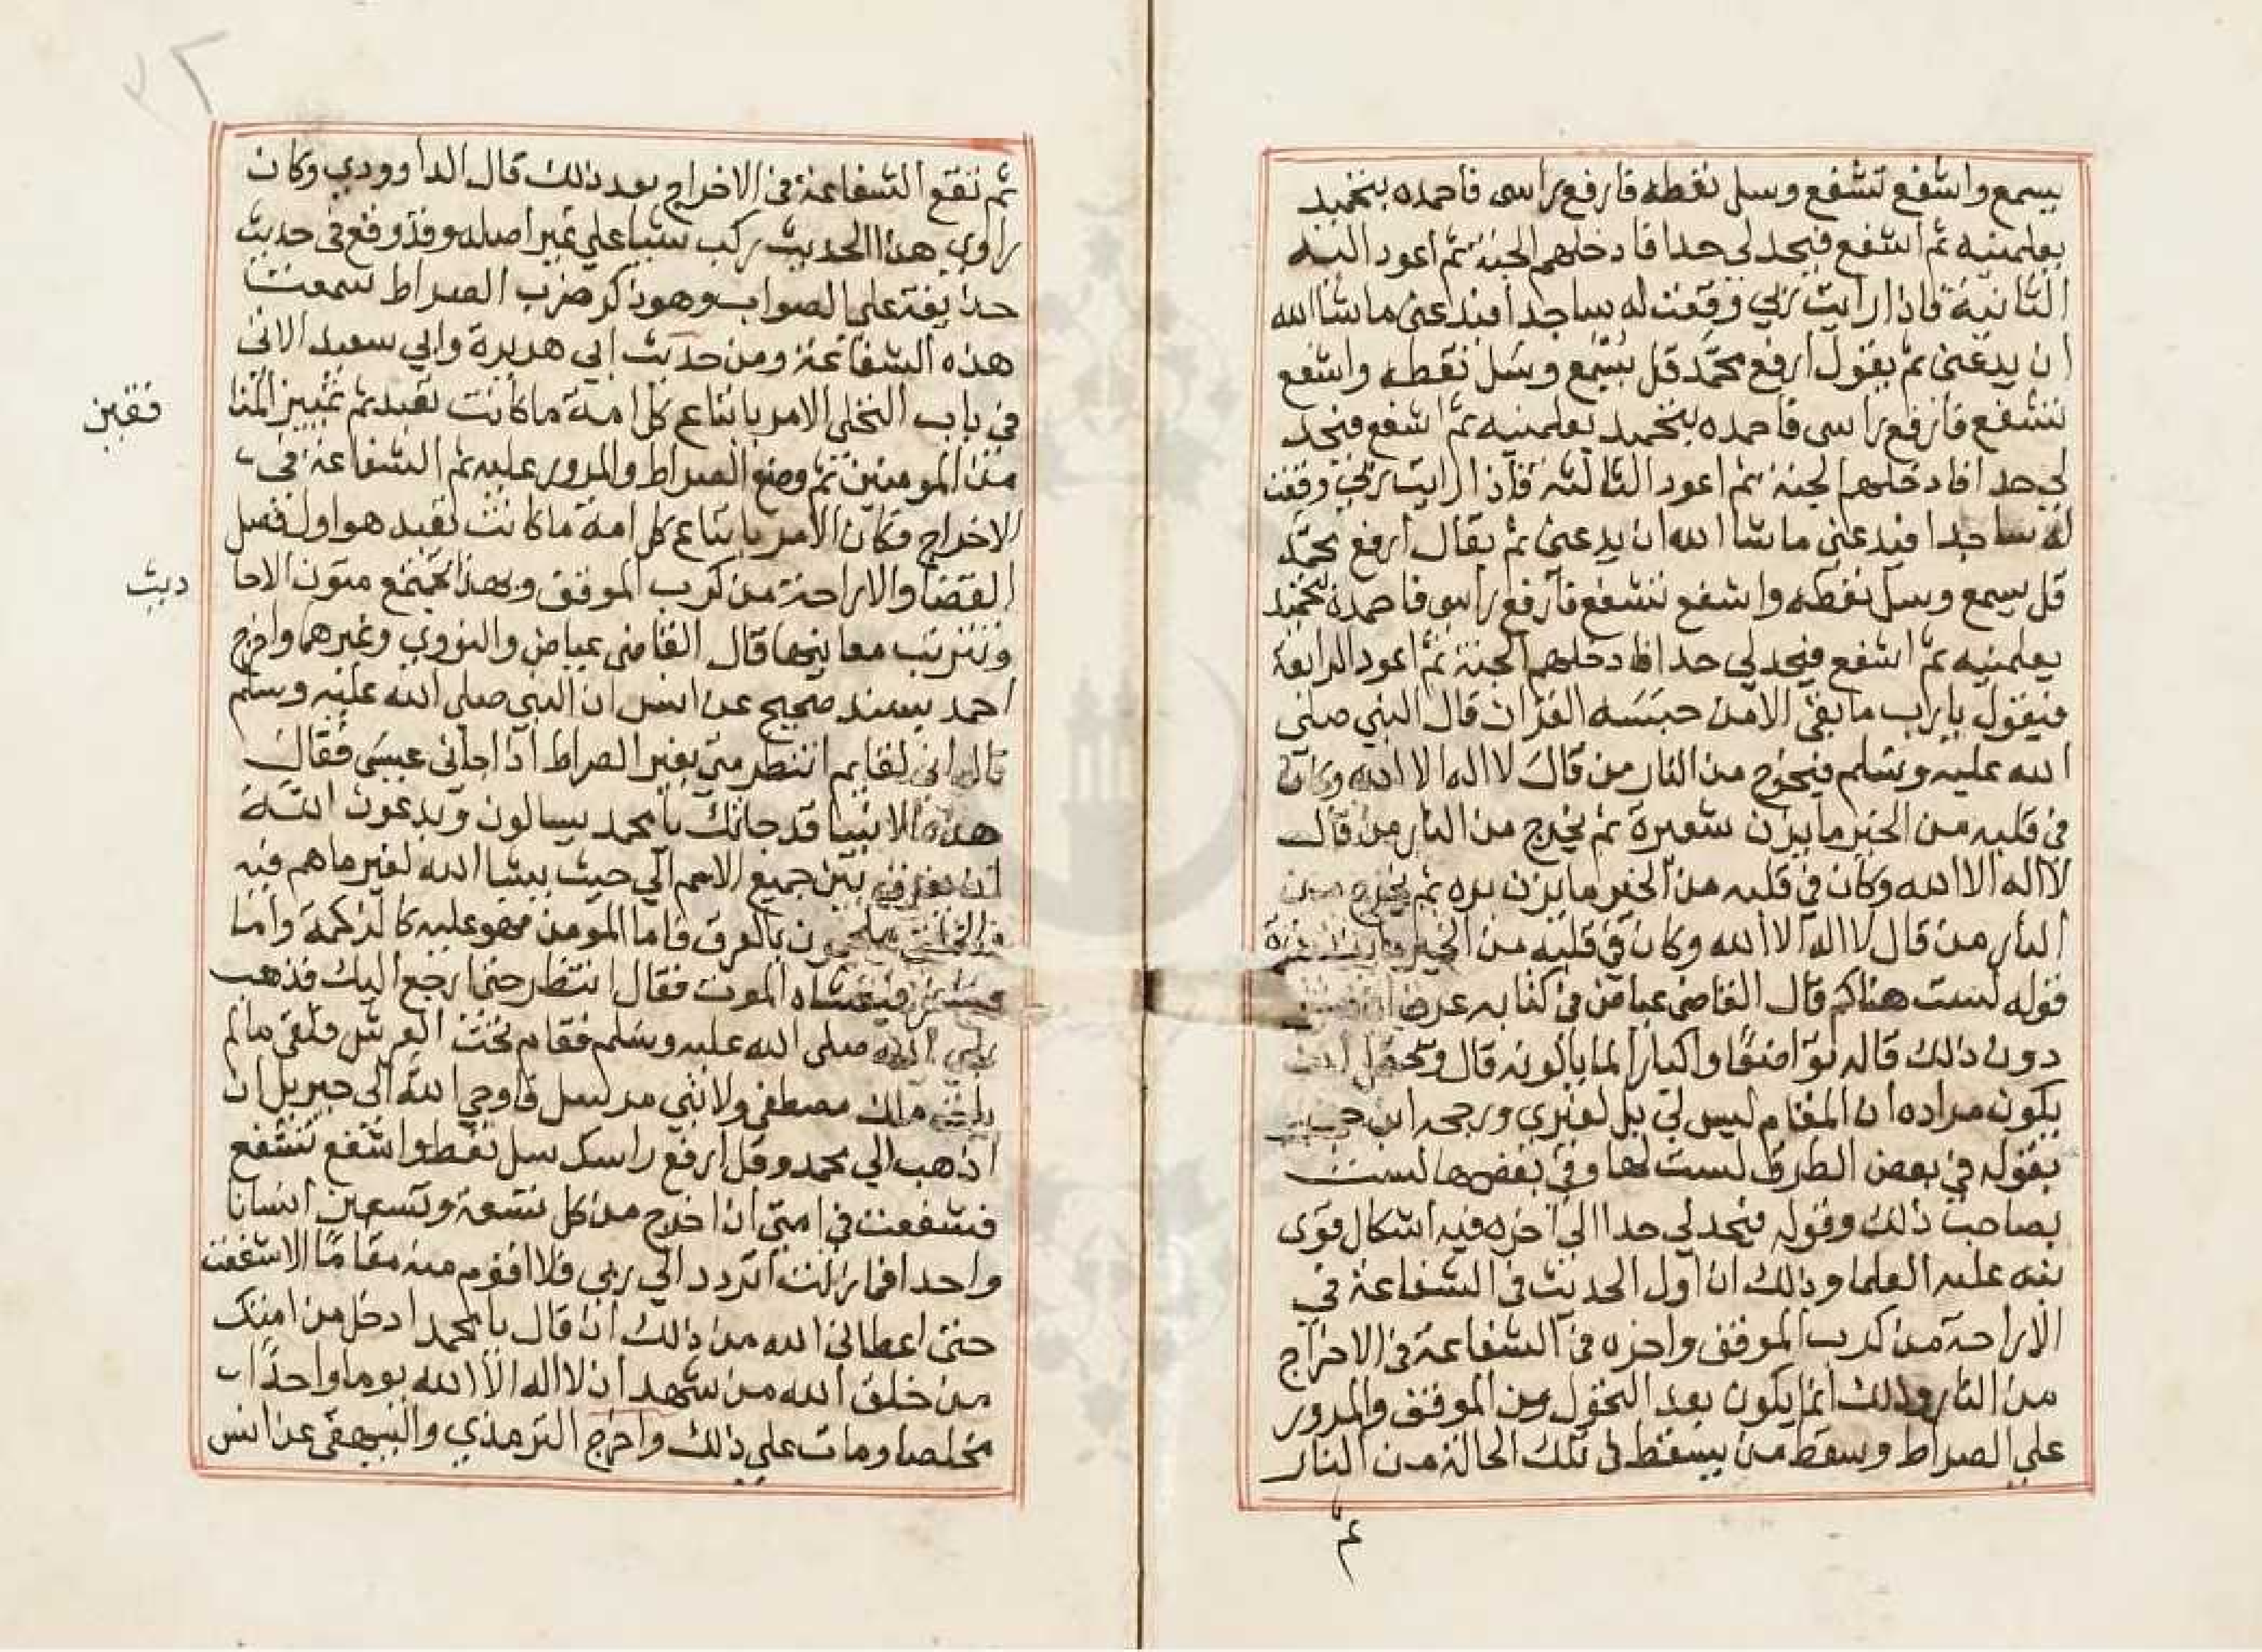 يسمع واشفع تشفع وسل تعطه فارفع راسى فاحمده بتحميد
يعلمنيه ثم اشفع فيحد لي حدا فادخلهم الجنة ثم اعود اليه
الثانية فاذا رايت ربي وقعت له ساجدا فيدعنى ماشا الله
ان يدعنى ثم يقول ارفع محمد قل يسمع وسل تعطه واشفع
تشفع فارفع راسى فاحمده بتحميد يعلمنيه ثم اشفع فيحد
لي حدا فادخلهم الجنة ثم اعود الثالثة فاذا رايت ربي وقعت
له ساجدا فيدعني ماشا الله ان يدعنى ثم يقال ارفع محمد
قل يسمع وسل تعطه واشفع تشفع فارفع راسى فاحمده بتحميد
يعلمنيه ثم اشفع فيحد لي حدا فادخلهم الجنة ثم اعود الرابعة
فيقول يارب ما بقى الا من حبسه القران قال النبي صلى
الله عليه وسلم فيخرج من النار من قال لا اله الا الله وكان
فى قلبه من الخير مايزن شعيرة ثم يخرج من النار من قال
لا اله الا الله وكان في قلبه من الخير مايزن بره ثم يخرج من
النار من قال لا اله الا الله وكان فى قلبه من الخير مايزن ذرة
قوله لست هناكم قال القاضى عياض فى كتابه عن
دون ذلك قاله تواضعا واكبارا لما يالونه قال ويحتمل ان
يكون مراده ان المقام ليس لي بل لغيري ورجحه ابن حجر
بقوله في بعض الطرق لست لها وفى بعضها لست
بصاحب ذلك وقوله فيحد لي حدا الى اخره فيه اشكال قوى
نبه عليه العلما وذلك ان اول الحديث فى الشفاعة في
الاراحة من كرب الموقف واخره فى الشفاعة فى الاخراج
من النار وذلك انما يكون بعد التحول من الموقف والمرور
علي الصراط وسقط من يسقط فى تلك الحالة من النار
ثم
ثم تقع الشفاعة فى الاخراج بعد ذلك قال الداوودي وكان
راوي هذا الحديث ركب شيا علي غير اصله وقد وقع فى حديث
حذيفة على الصواب وهو ذكر ضرب الصراط
هذه الشفاعة ومن حديث ابي هريرة وابي سعيد الاتى
فى باب التجلى الامر باتباع كل امة ماكانت تعبد ثم تمييز المنا
فقين
من المومنين ثم وضع الصراط والمرور عليه ثم الشفاعة فى
الاخراج فكان الامر باتباع كل امة ماكانت تعبد هو اول فصل
القضا والاراحة من كرب الموقف وبهذا يجتمع متون الاحا
ديث
وتترتب معانيها قال القاضى عياض والنووي وغيرهما واخرج
احمد بسند صحيح عن انس ان النبي صلى الله عليه وسلم
قال اني لقايم انتظر متى يعبر الصراط اذا جاني عيسى فقال
هذه الانبيا قد جاتك يا محمد يسالون ويدعون الله
ان يفرق بين جميع الامم الي حيث يشا الله لغير ماهم فيه
بالعرق فاما المومن فهو عليه كالزكمة واما
فيغشاه الموت فقال انتظر حتى ارجع اليك فذهب
نبي الله صلى الله عليه وسلم فقام تحت العرش فلقى مالم
ملك مصطفى ولا نبي مرسل فاوحي الله الى جبريل ان
اذهب الي محمد وقل ارفع راسك سل تعط واشفع تشفع
فشفعت فى امتى ان اخرج من كل تسعة وتسعين انسانا
واحدا فما زلت اتردد الي ربى فلا اقوم منه مقاما الا شفعت
حتى اعطانى الله من ذلك ان قال يا محمد ادخل من امتك
من خلق الله من شهد ان لا اله الا الله يوما واحدا
مخلصا ومات علي ذلك واخرج الترمذي والبيهقى عن انس